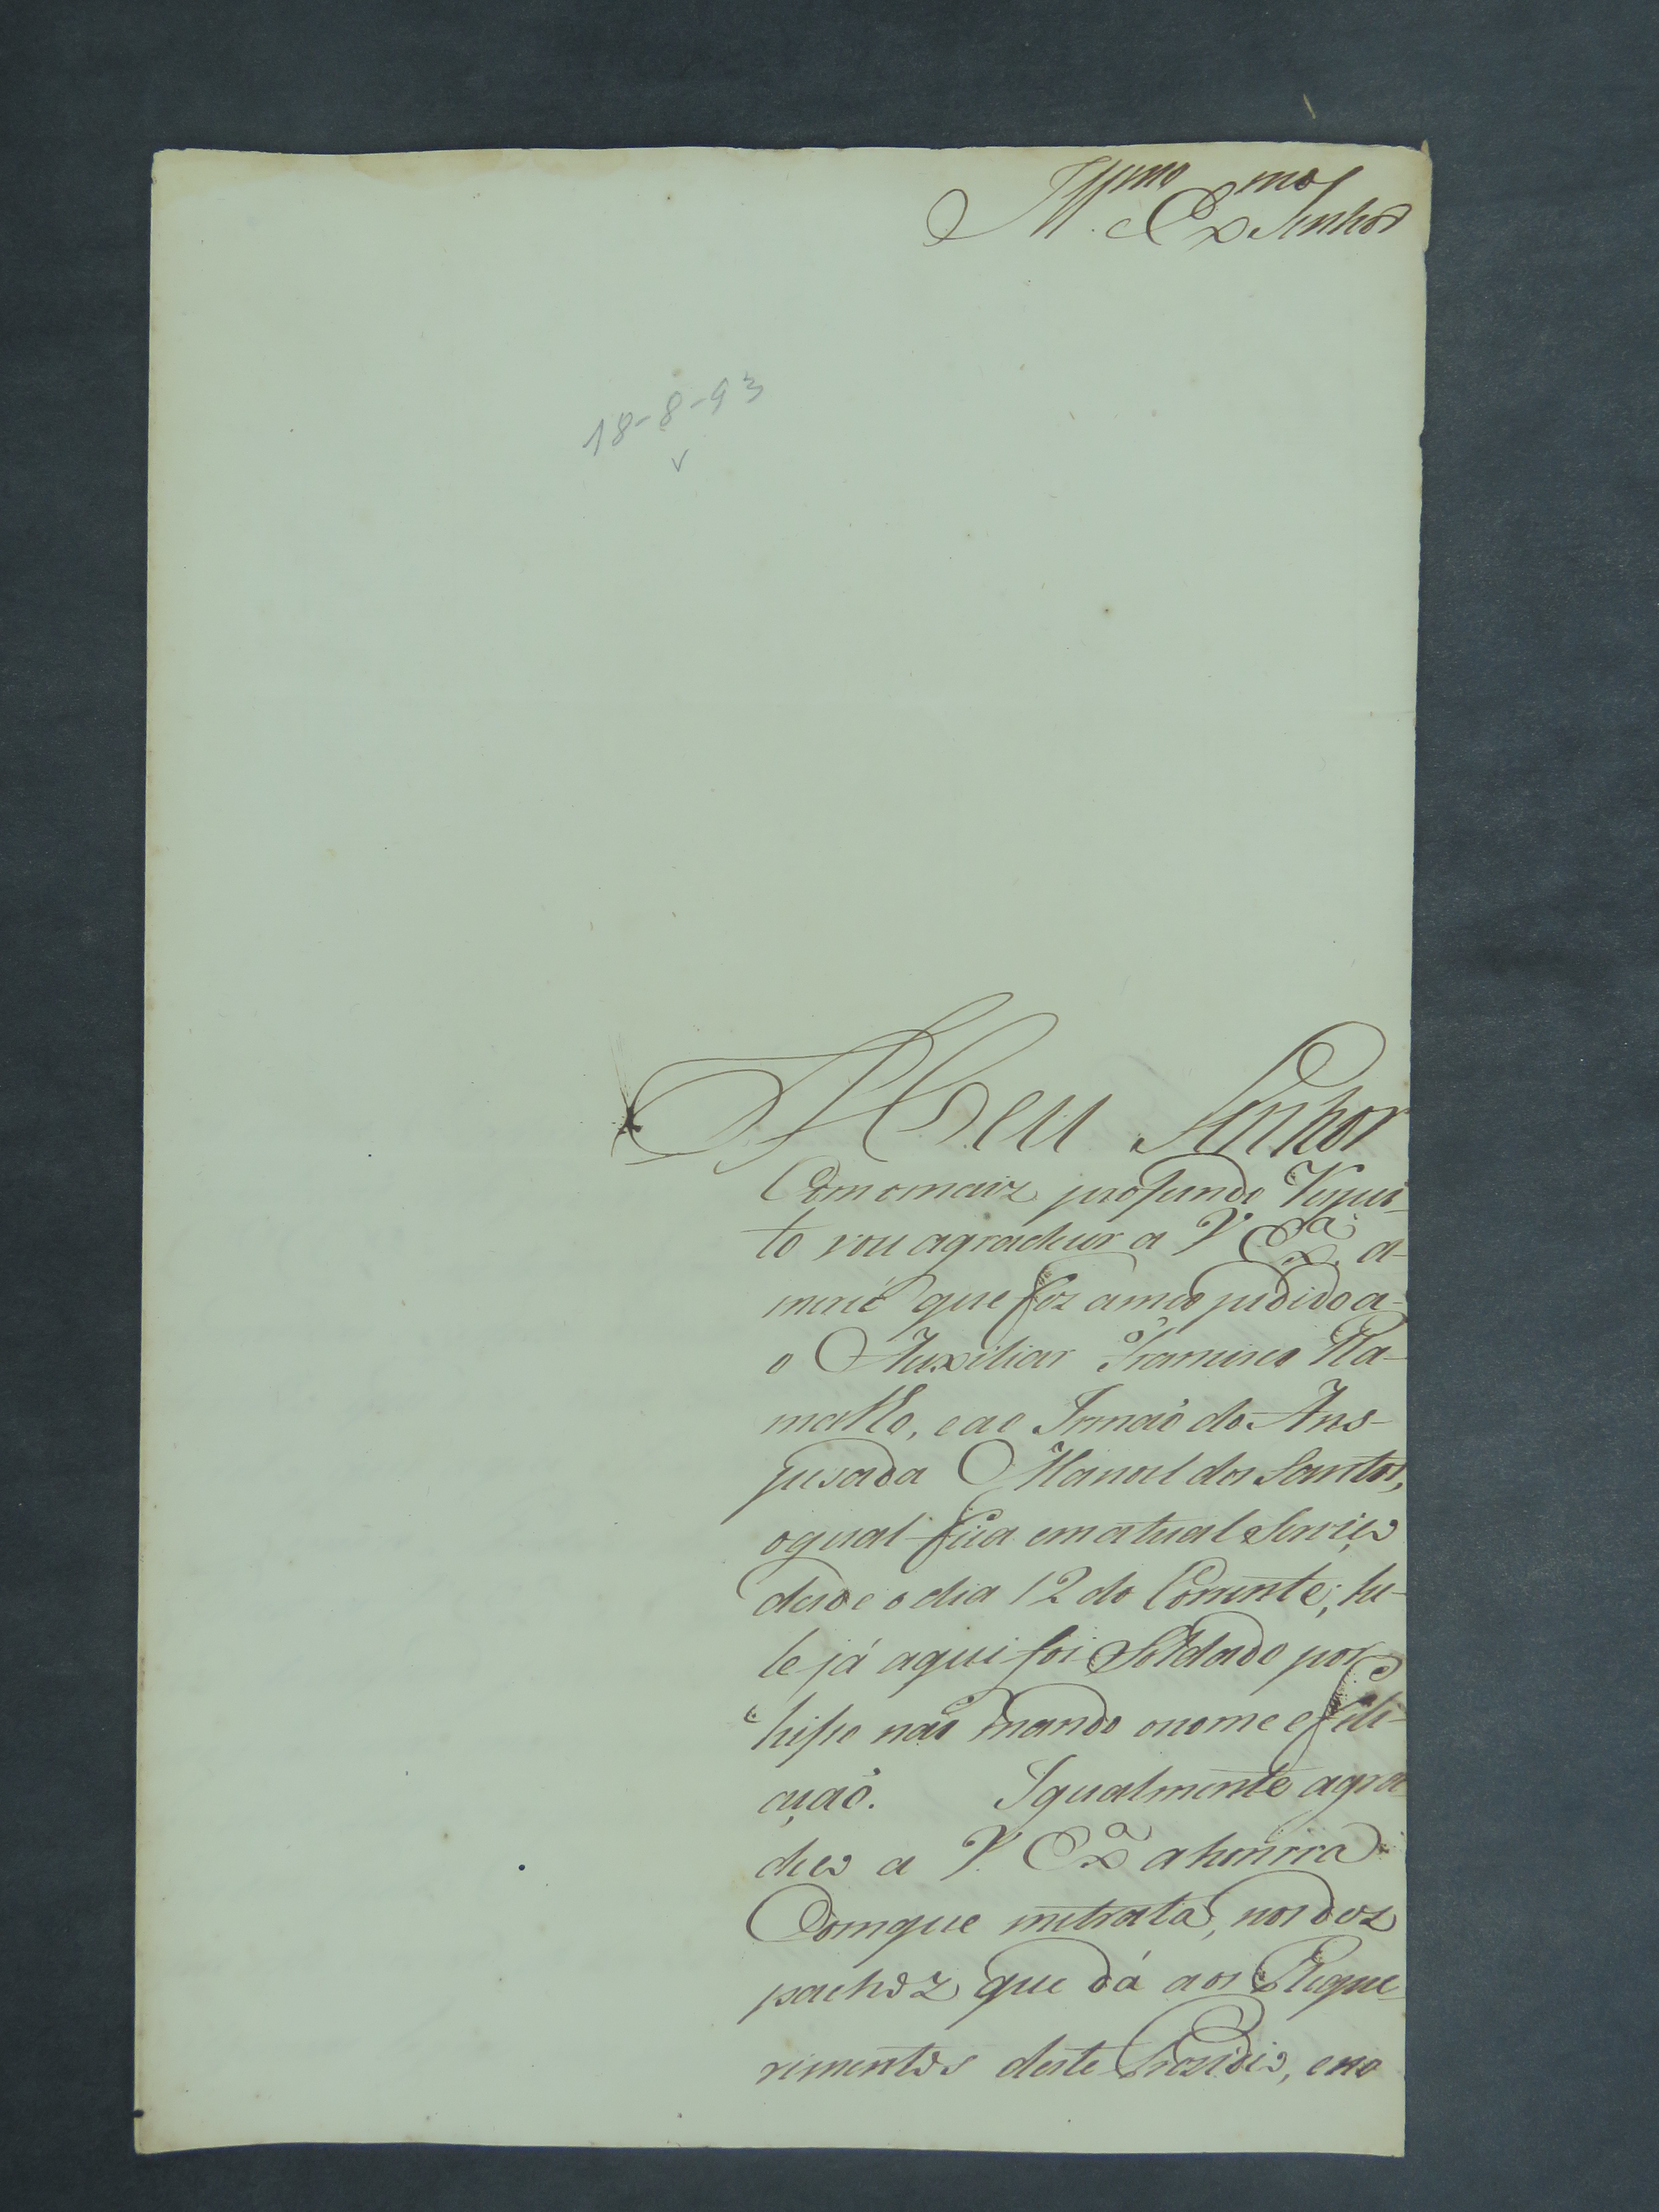 Illmo. Exmo Senhor
18-8-93
Meu Senhor
Com omaiz profundo Respei-
to vou agradecer a V. Exa. a-
mercê que fez ameo pedido a-
o Auxiliar Francisco Ra-
malho, eao Irmaõ do Ans-
pesada Manoel dos Santos,
oqual fica ematual Serviço
desde o dia 12 do Corrente; he-
le já aqui foi Soldado por
hiso naõ mando onome e fili-
açaõ. Igualmente agra
deço a V. Exa ahonrra
Comque metrata, nos dez
pachoz que dá aos Reque-
rimentos deste Prezidio, eno